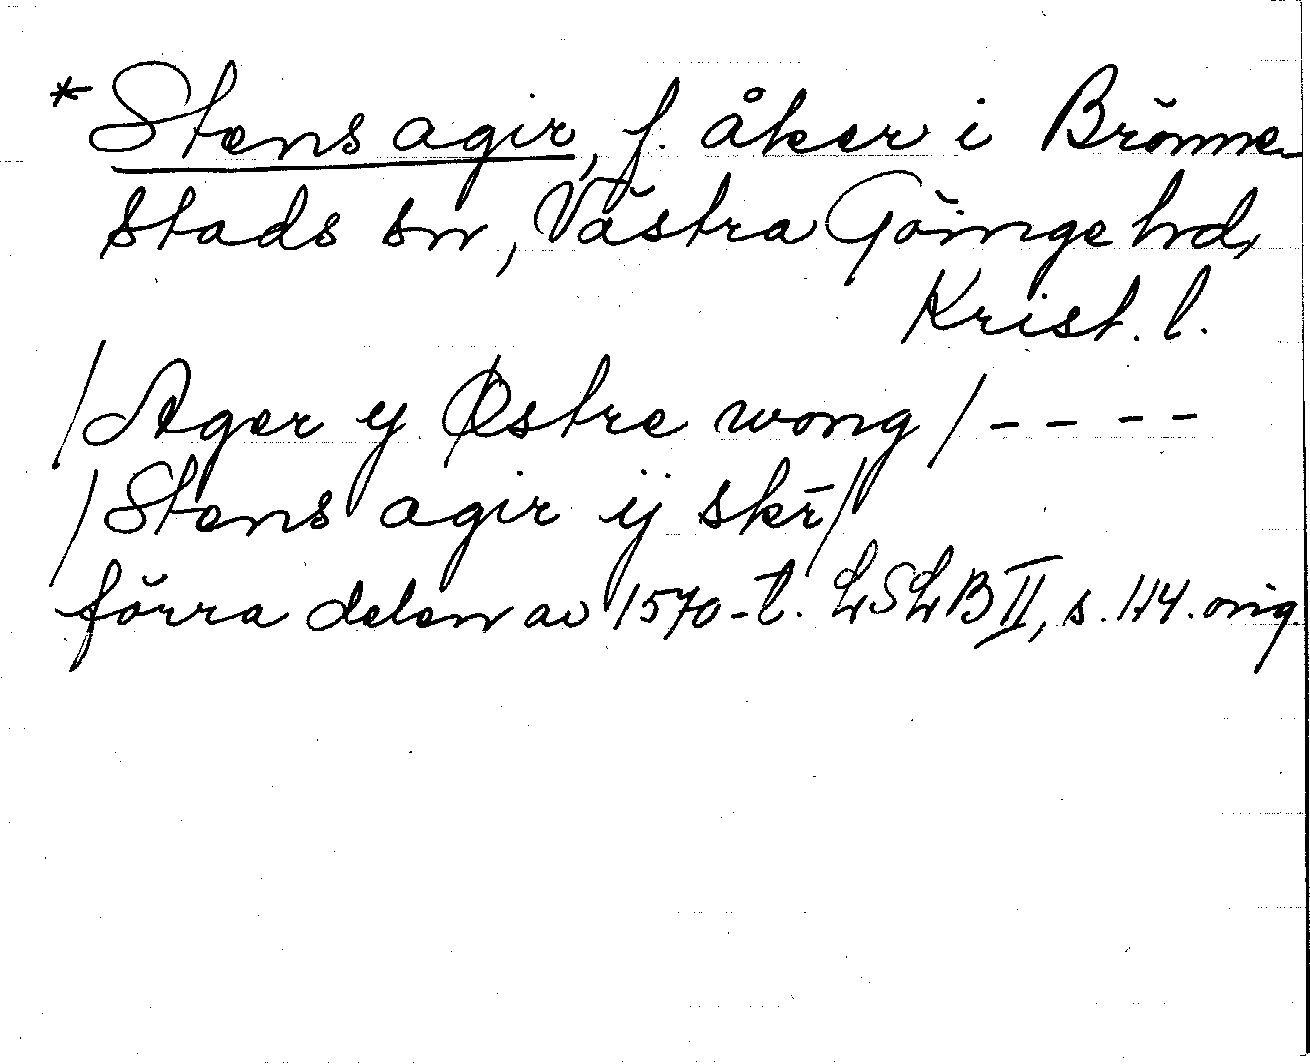 * Stens agir, f. åker i Brönne-
stads sn, Västra Göinge hd,
Krist. l.
/Ager y Østre wong/----
/Stens agir ij skr̄/
förra delen av 1570-t. LSLB II, s. 114. orig.